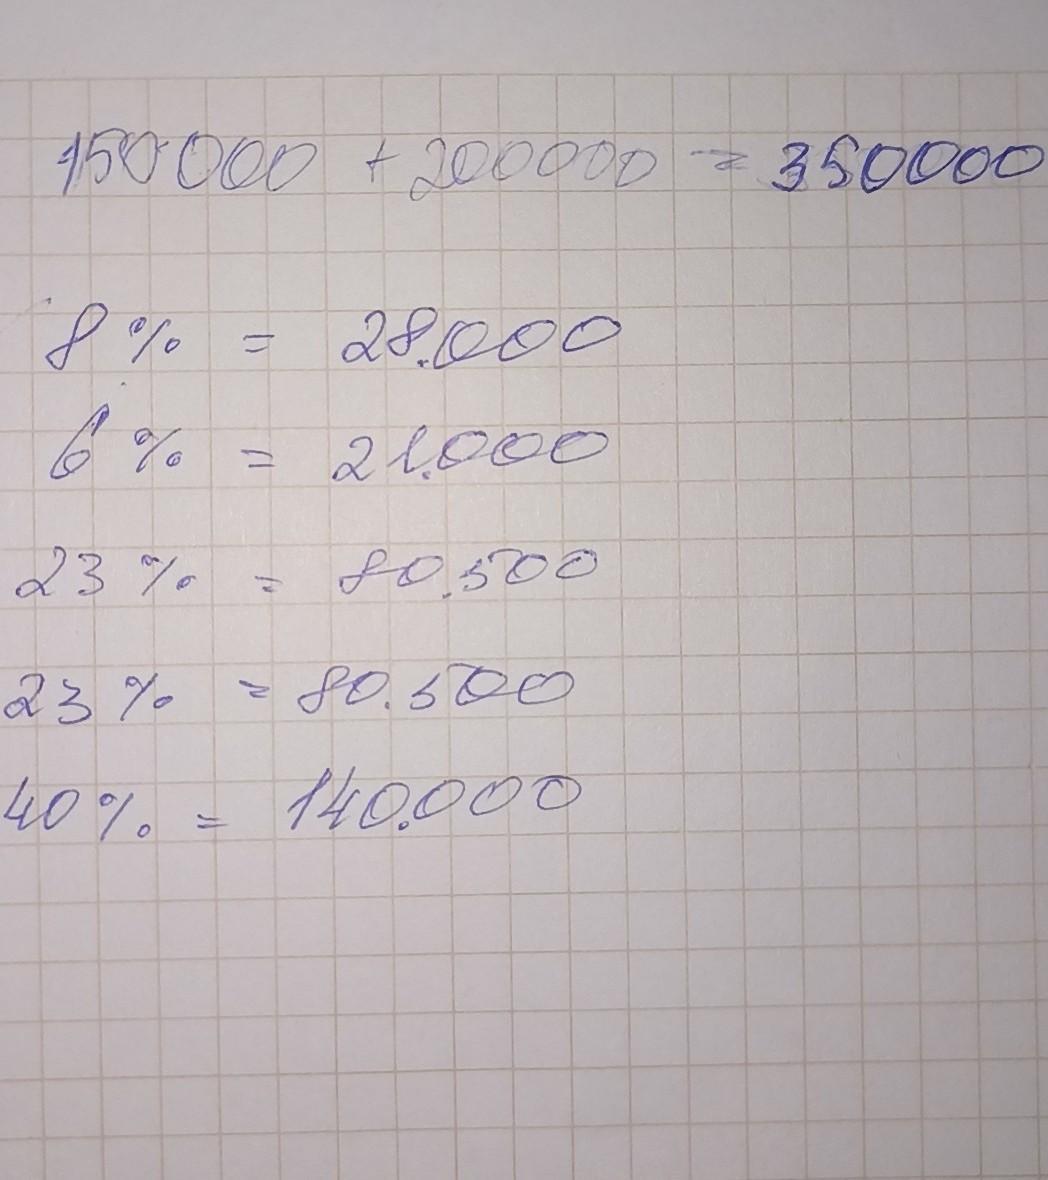 150000 + 200000 = 350000
8 % = 28.000
6 % = 21.000
23 % = 80.500
23 % = 80.500
40 % = 140.000